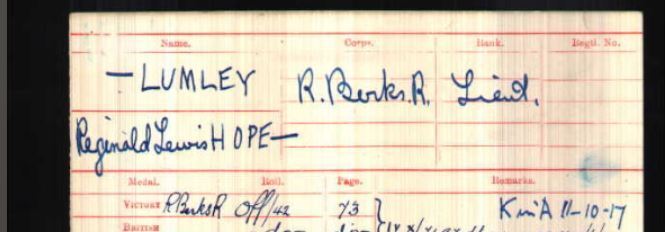 Name. Corps. Rank. Regtl. No.
— LUMLEY R. Berks. R. Lieut.
Reginald Lewis HOPE —
Medal. Roll. Page. Remarks.
VICTORY R Berks R Off/42 73 K in A 11-10-17
BRITISH do do